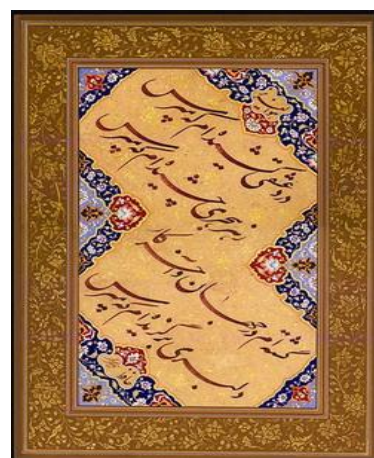 درد عشقی کشیده‌ام که مپرس
زهر هجری چشیده‌ام که مپرس
گشته‌ام در جهان و آخر کار
دلبری برگزیده‌ام که مپرس